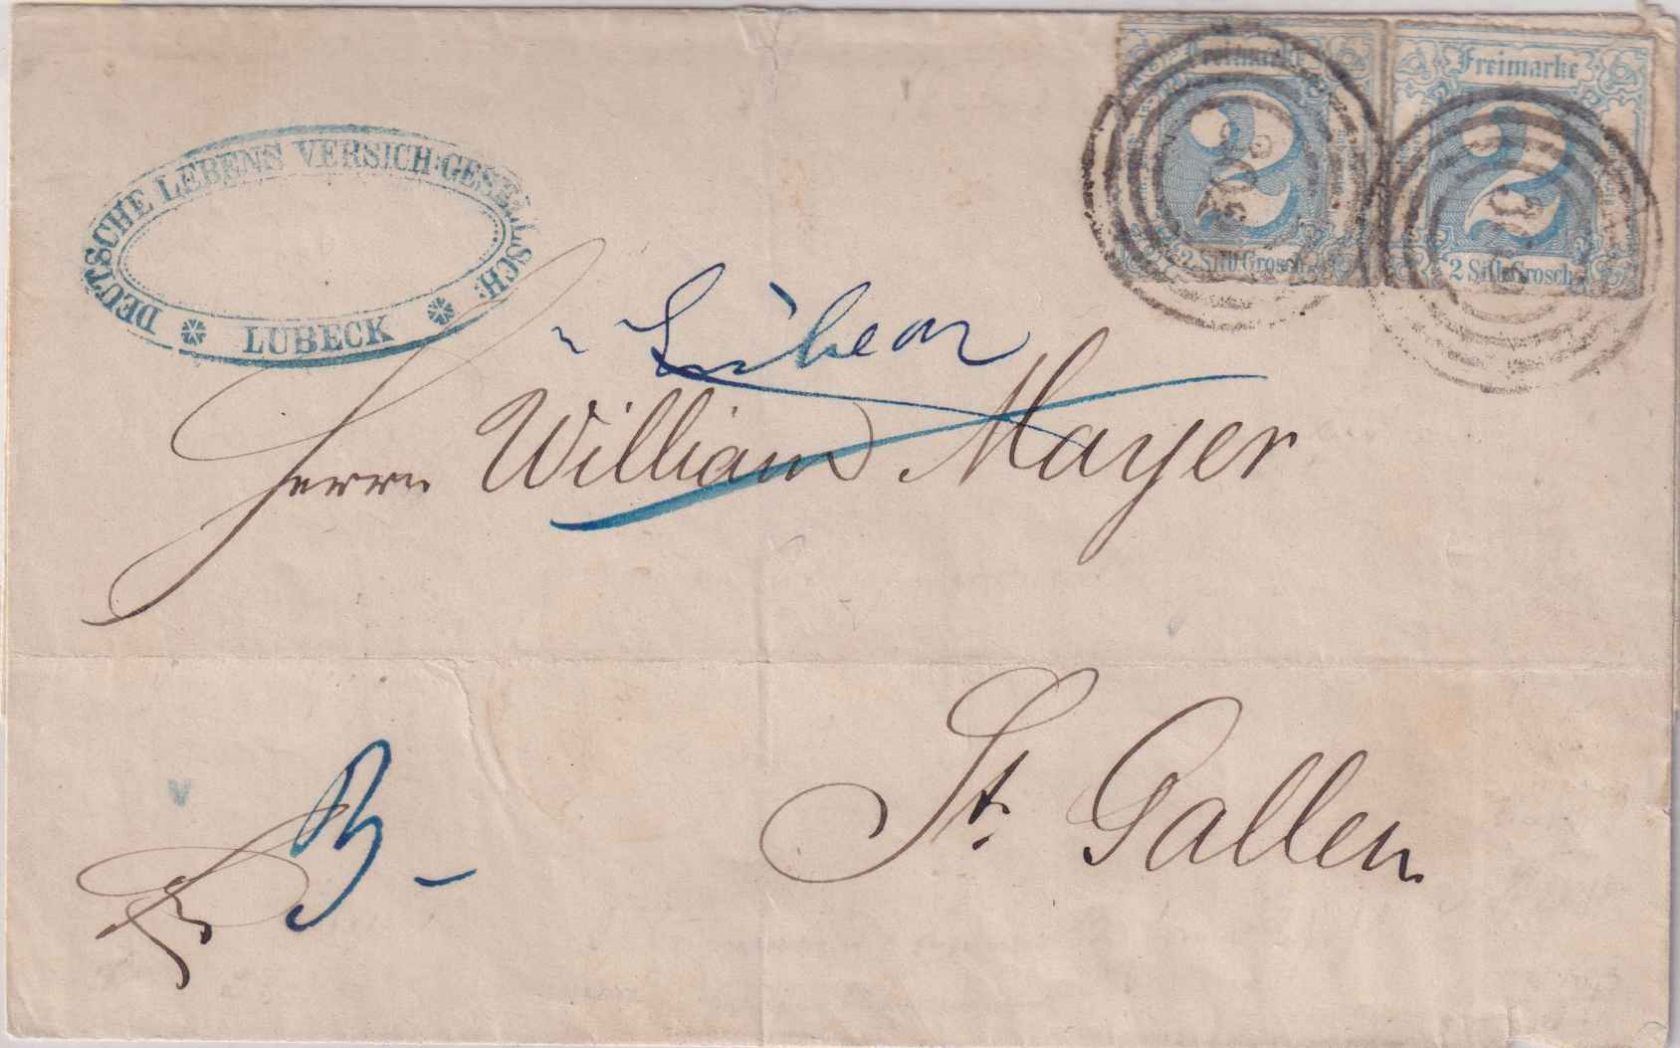 DEUTSCHE LEBENS VERSICH: GESELLSCH:
LÜBECK
Freimarke
2
2 Silb. Grosch.
Freimarke
2
2 Silb. Grosch.
Herrn William Mayer
St. Gallen